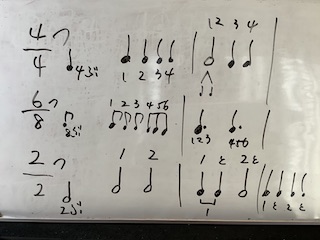 4/4 1 2 3 4 1 2 3 4
6/8 1 2 3 4 5 6 1 2 3 4 5 6
2/2 1 2 1 & 2 & 1 & 2 &
1